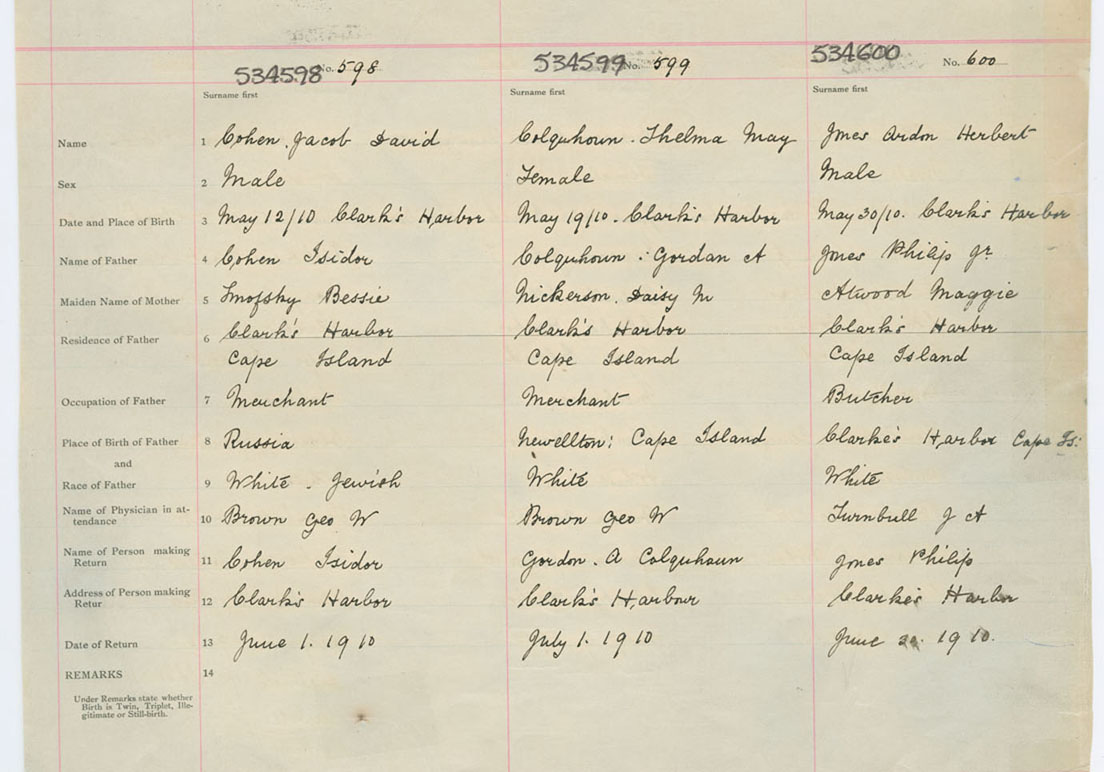 534598 No. 598 534599 No. 599 534600 No. 600
Surname first Surname first Surname first
Name 1 Cohen. Jacob David Colquhoun. Thelma May Jones Ardon Herbert
Sex 2 Male Female Male
Date and Place of Birth 3 May 12/10 Clark's Harbor May 19/10. Clark's Harbor May 30/10. Clark's Harbor
Name of Father 4 Cohen Isidor Colquhoun : Gordan A Jones Philip Jr.
Maiden Name of Mother 5 Smofsky Bessie Nickerson. Daisy M Atwood Maggie
Residence of Father 6 Clark's Harbor Clark's Harbor Clark's Harbor
Cape Island Cape Island Cape Island
Occupation of Father 7 Merchant Merchant Butcher
Place of Birth of Father 8 Russia Newellton: Cape Island Clarke's Harbor Cape Is:
and
Race of Father 9 White. Jewish White White
Name of Physician in at-
tendance 10 Brown Geo W Brown Geo W Turnbull J A
Name of Person making
Return 11 Cohen Isidor Gordon. A Colquhoun Jones Philip
Address of Person making
Retur 12 Clark's Harbor Clark's Harbour Clarke's Harbor
Date of Return 13 June 1. 1910 July 1. 1910 June 1910.
REMARKS 14
Under Remarks state whether
Birth is Twin, Triplet, Ille-
gitimate or Still-birth.